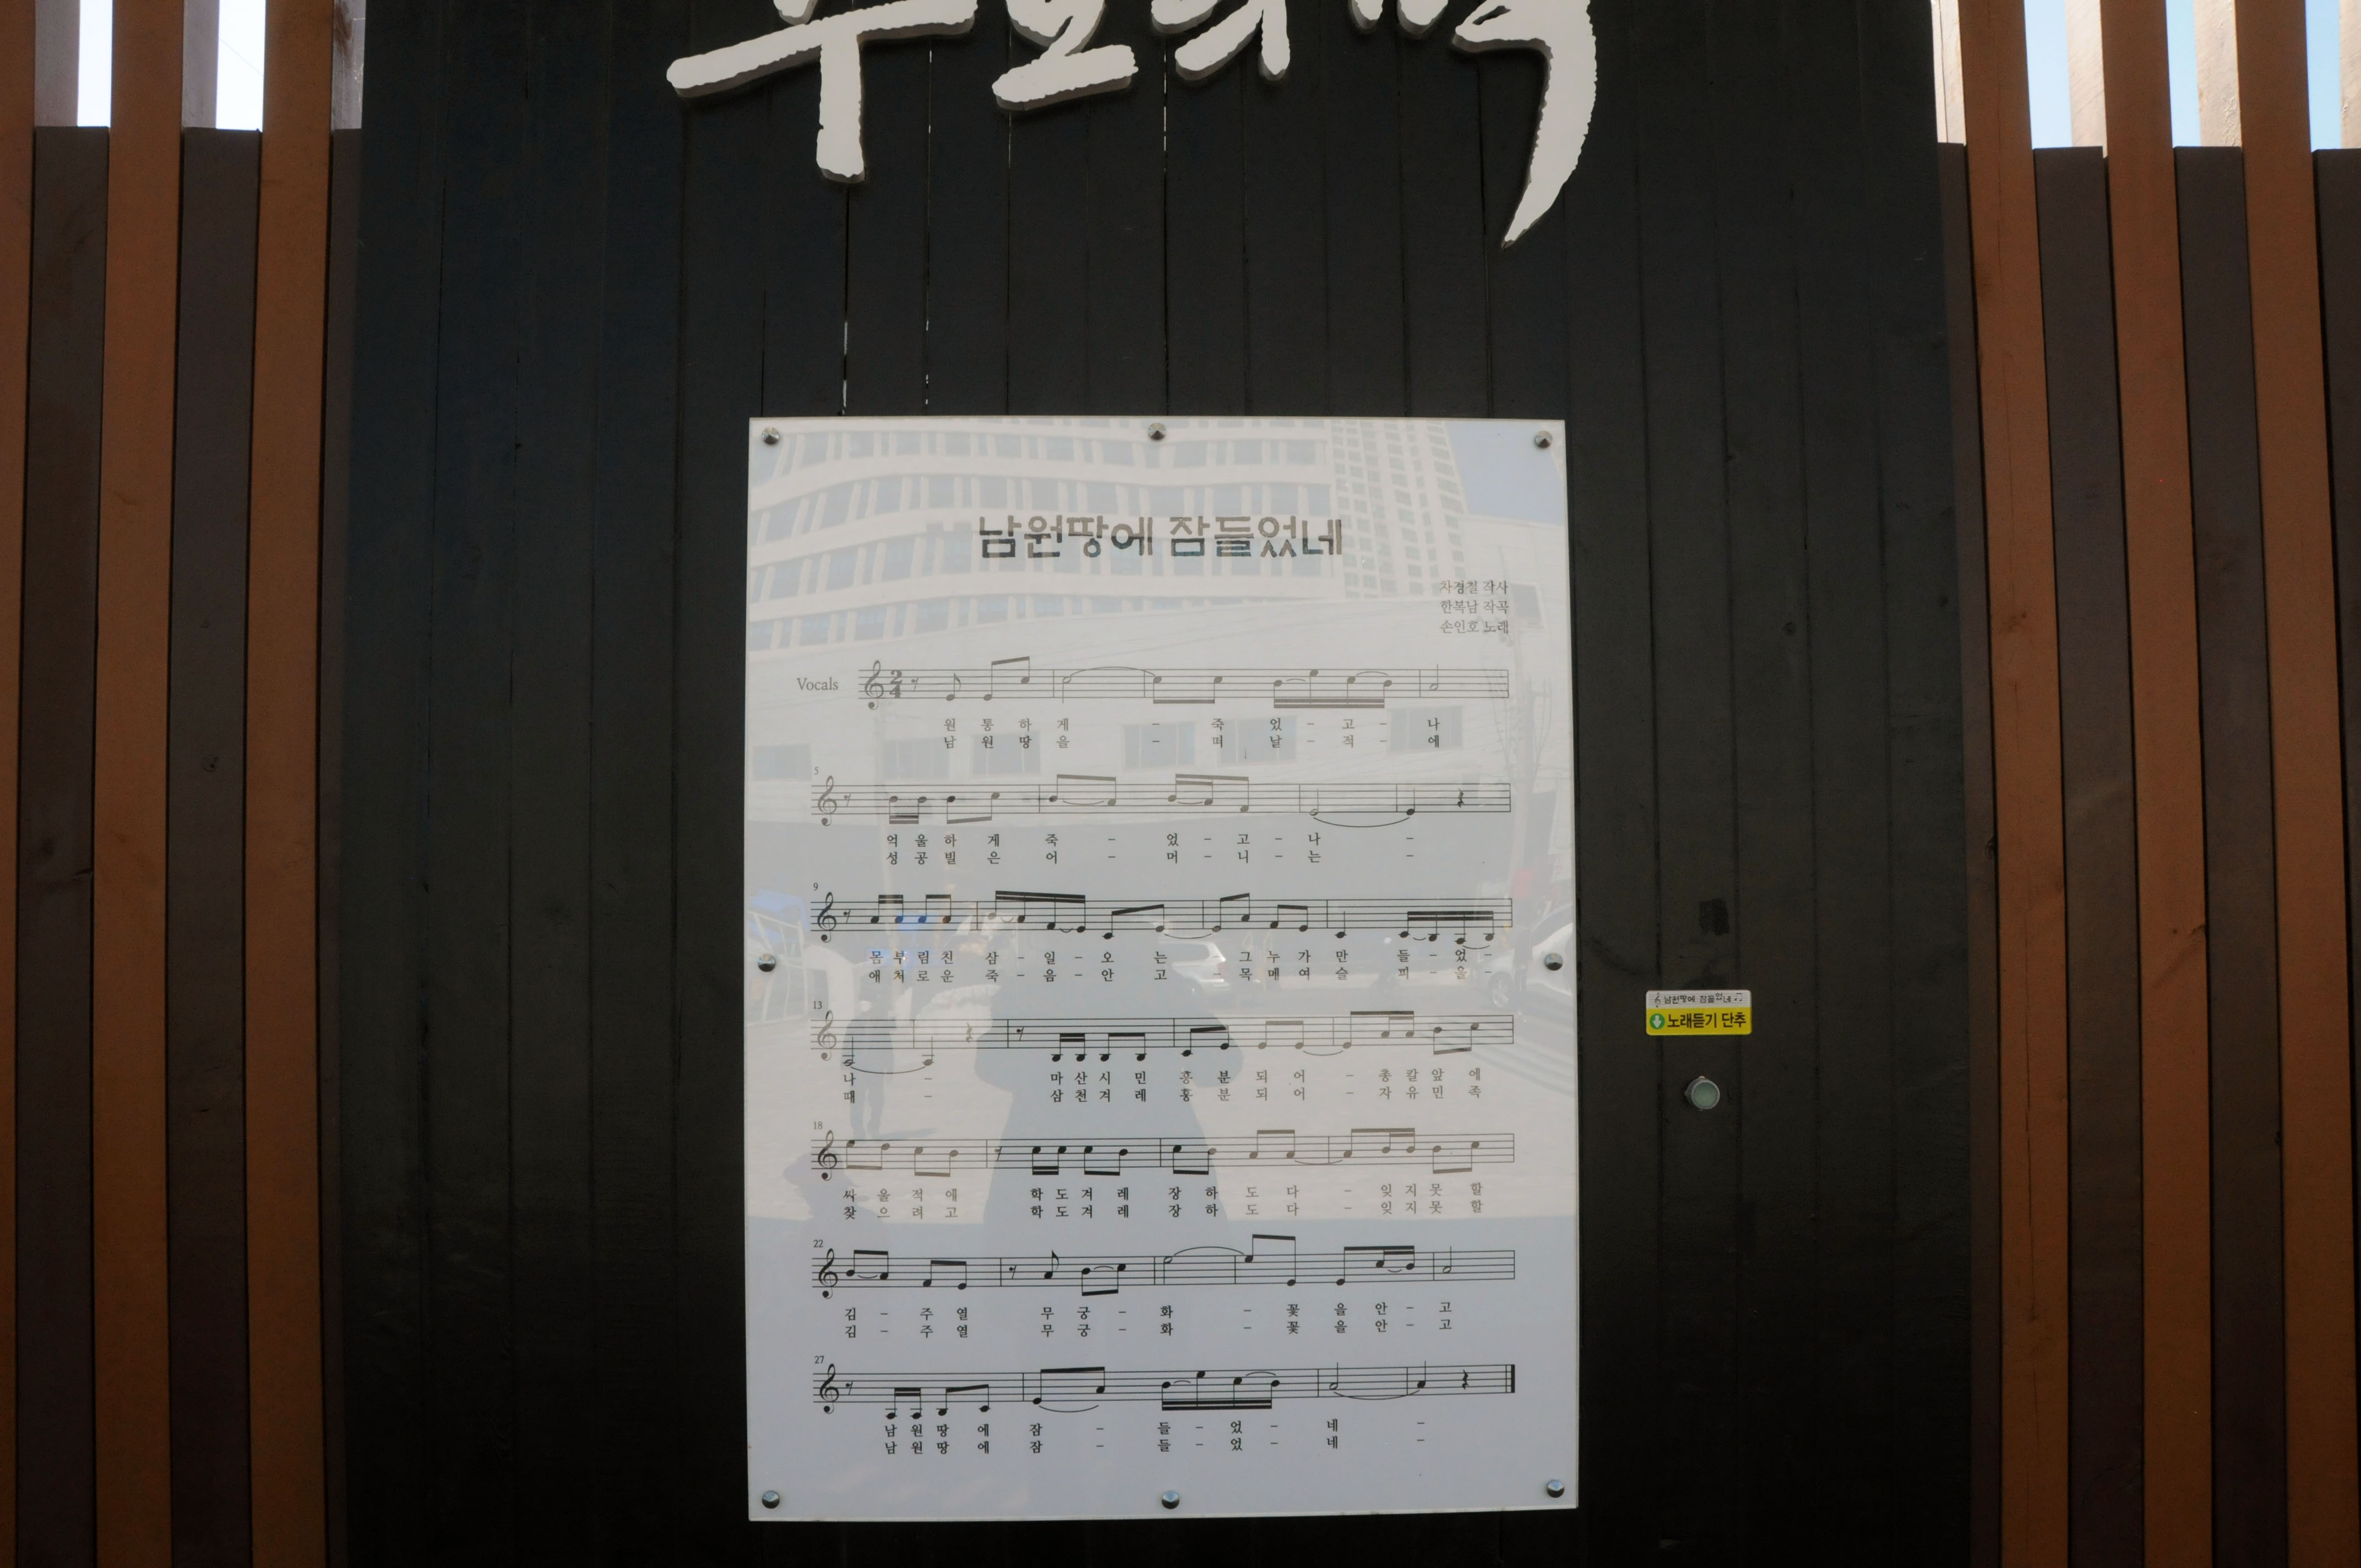 추모의 벽
남원땅에 잠들었네
차경철 작사
한복남 작곡
손인호 노래
Vocals
2
4
원 통 하 게 - 죽 었 - 고 - 나
남 원 땅 을 - 떠 날 - 적 - 에
5
억 울 하 게 죽 - 었 - 고 - 나 -
성 공 빌 은 어 - 머 - 니 - 는 -
9
몸 부 림 친 삼 - 일 - 오 는 - 그 누 가 만 들 - 었 -
애 처 로 운 죽 - 음 - 안 고 - 목 메 여 슬 피 - 울 -
13
나 - 마 산 시 민 흥 분 되 어 - 총 칼 앞 에
때 - 삼 천 겨 레 흥 분 되 어 - 자 유 민 족
18
싸 울 적 에 학 도 겨 레 장 하 도 다 - 잊 지 못 할
찾 으 려 고 학 도 겨 레 장 하 도 다 - 잊 지 못 할
22
김 - 주 열 무 궁 - 화 - 꽃 을 안 - 고
김 - 주 열 무 궁 - 화 - 꽃 을 안 - 고
27
남 원 땅 에 잠 - 들 - 었 - 네 -
남 원 땅 에 잠 - 들 - 었 - 네 -
남원땅에 잠들었네
노래듣기 단추